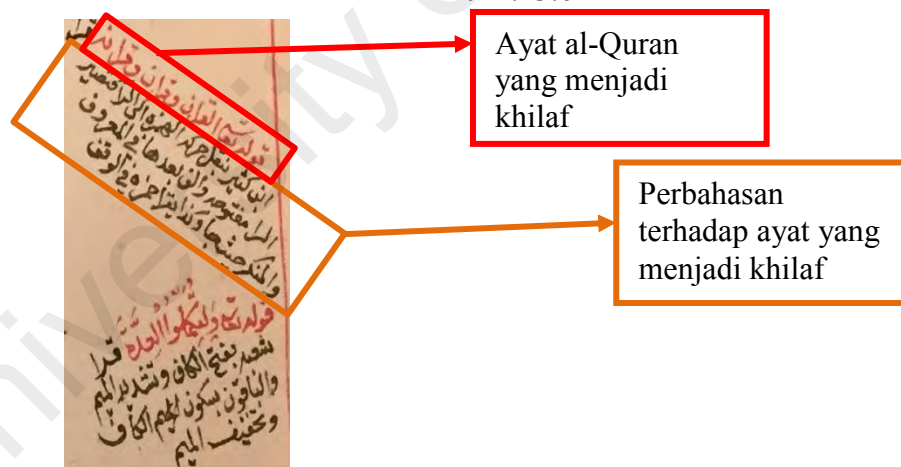 Ayat al-Quran
yang menjadi
khilaf
Perbahasan
terhadap ayat yang
menjadi khilaf
قوله تعا القران وقرانه قرا
ابن كثير بنقل حركة الهمزة الى الرا فتصير
الرا مفتوحه والف بعدها في المعروف
والمنكر جميعا وكذا يقرا حمزه في الوقف
قوله تعا وَلِتُكَمِّلُوا الْعِدَّةَ قرا
شعبه بفتح الكاف وتشديد الميم
والباقون بسكون الكاف
وتخفيف الميم